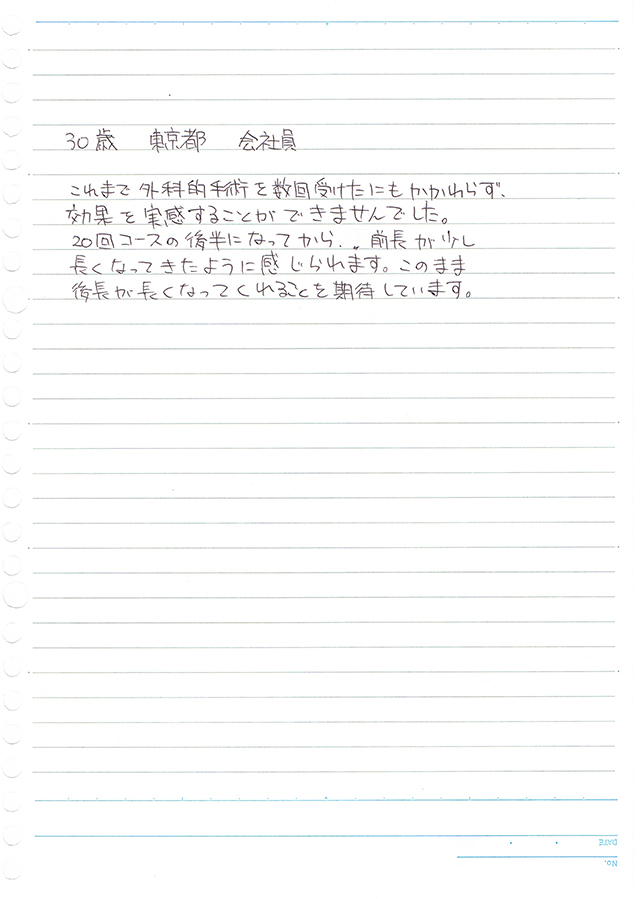 30歳 東京都 会社員
これまで外科的手術を数回受けたにもかかわらず、
効果を実感することができませんでした。
20回コースの後半になってから、、前長が少し
長くなってきたように感じられます。このまま
後長が長くなってくれることを期待しています。
DATE
No.